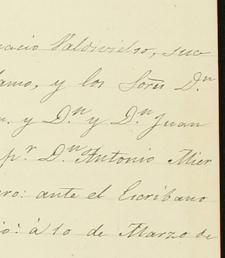 nacio Valdivielso, suce
lamo, y los Sores Dn
n. y Dn y Dn Juan
pr. Dn Antonio Mier
ro: ante el Escribano
io: á 10 de Marzo de